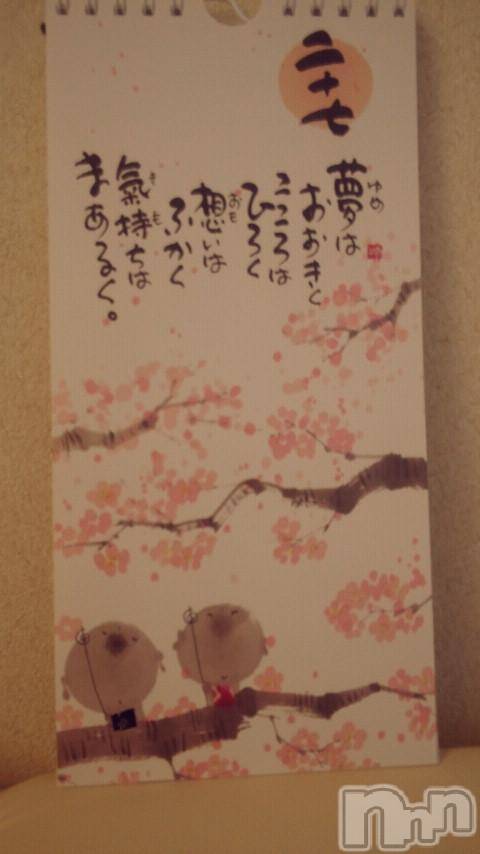 二十七
夢は
ゆめ
おおきく
こころは
ひろく
想いは
おも
ふかく
氣持ちは
きも
まあるく。
nnn